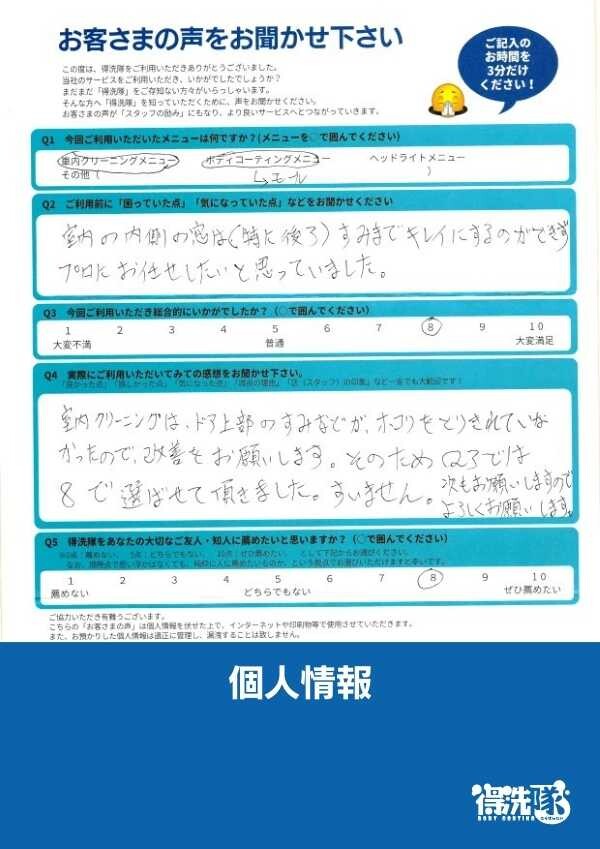 お客さまの声をお聞かせ下さい
この度は、得洗隊をご利用いただきありがとうございました。
当社のサービスをご利用いただき、いかがでしたでしょうか?
まだまだ「得洗隊」をご存知ない方々がいらっしゃいます。
そんな方へ「得洗隊」を知っていただくために、声をお聞かせください。
お客さまの声が「スタッフの励み」にもなり、より良いサービスへとつながっていきます。
ご記入の
お時間を
3分だけ
ください!
Q1 今回ご利用いただいたメニューは何ですか?(メニューを○で囲んでください)
車内クリーニングメニュー ボディコーティングメニュー ヘッドライトメニュー
その他( )
↳モール
Q2 ご利用前に「困っていた点」「気になっていた点」などをお聞かせください
室内の内側の窓は(特に後ろ)すみまでキレイにするのができず
プロにお任せしたいと思っていました。
Q3 今回ご利用いただき総合的にいかがでしたか?(○で囲んでください)
1 2 3 4 5 6 7 8 9 10
大変不満 普通 大変満足
Q4 実際にご利用いただいてみての感想をお聞かせ下さい。
「良かった点」「嬉しかった点」「気になった点」「満足の理由」「店(スタッフ)の印象」など一言でも大歓迎です!
室内クリーニングは、ドア上部のすみなどが、ホコリをとりきれていな
かったので、改善をお願いします。そのためQ3では
8で選ばせて頂きました。すいません。
次もお願いしますので
よろしくお願いします。
Q5 得洗隊をあなたの大切なご友人・知人に薦めたいと思いますか?(○で囲んでください)
※0点:薦めない、 5点:どちらでもない、 10点:ぜひ薦めたい、 として下記からお選びください。
1 2 3 4 5 6 7 8 9 10
薦めない どちらでもない ぜひ薦めたい
ご協力いただき有難うございます。
こちらの「お客さまの声」は個人情報を伏せた上で、インターネットや印刷物等で使用させていただきます。
また、お預かりした個人情報は適正に管理し、漏洩することは致しません。
個人情報
得洗隊
BODY COATING